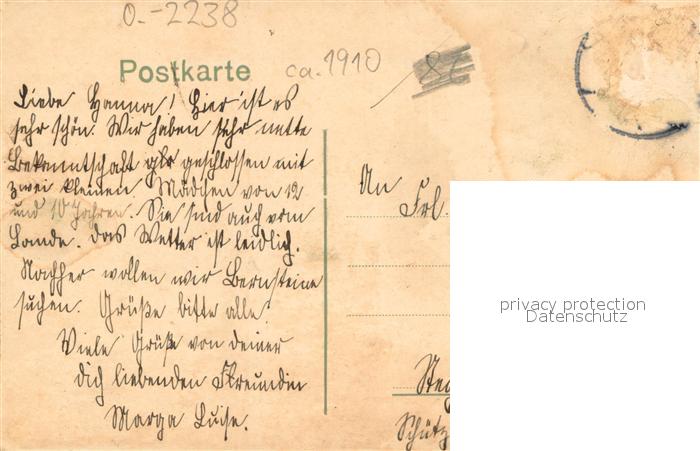 0.-2238
Postkarte
ca. 1910
Liebe Hanna! Hier ist es
sehr schön. Wir haben sehr nette
Bekanntschaft geschlossen mit
zwei kleinen Mädchen von 12
und 10 Jahren. Sie sind auch vom
Lande. Das Wetter ist leidlich.
Nachher wollen wir Bernsteine
suchen. Grüße bitte alle!
Viele Grüße von deiner
dich liebenden Freundin
Marga Luise.
An
Frl.
Steg
Schütz
privacy protection
Datenschutz